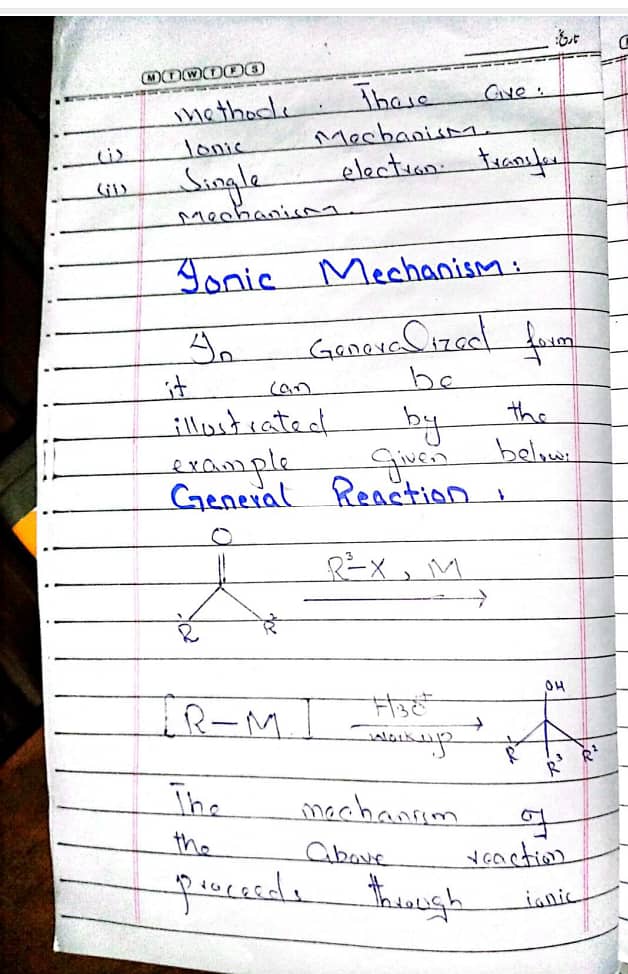 تاریخ:
M T W T F S
methods. These are:
(i) Ionic Mechanism.
(ii) Single electron transfer
mechanism.
Ionic Mechanism:
In Generalized form
it can be
illustrated by the
example given below:
General Reaction:
O
R³-X, M
R¹ R²
OH
[R-M] H3O+
workup
R¹ R³ R²
The mechanism of
the above reaction
proceeds through ionic